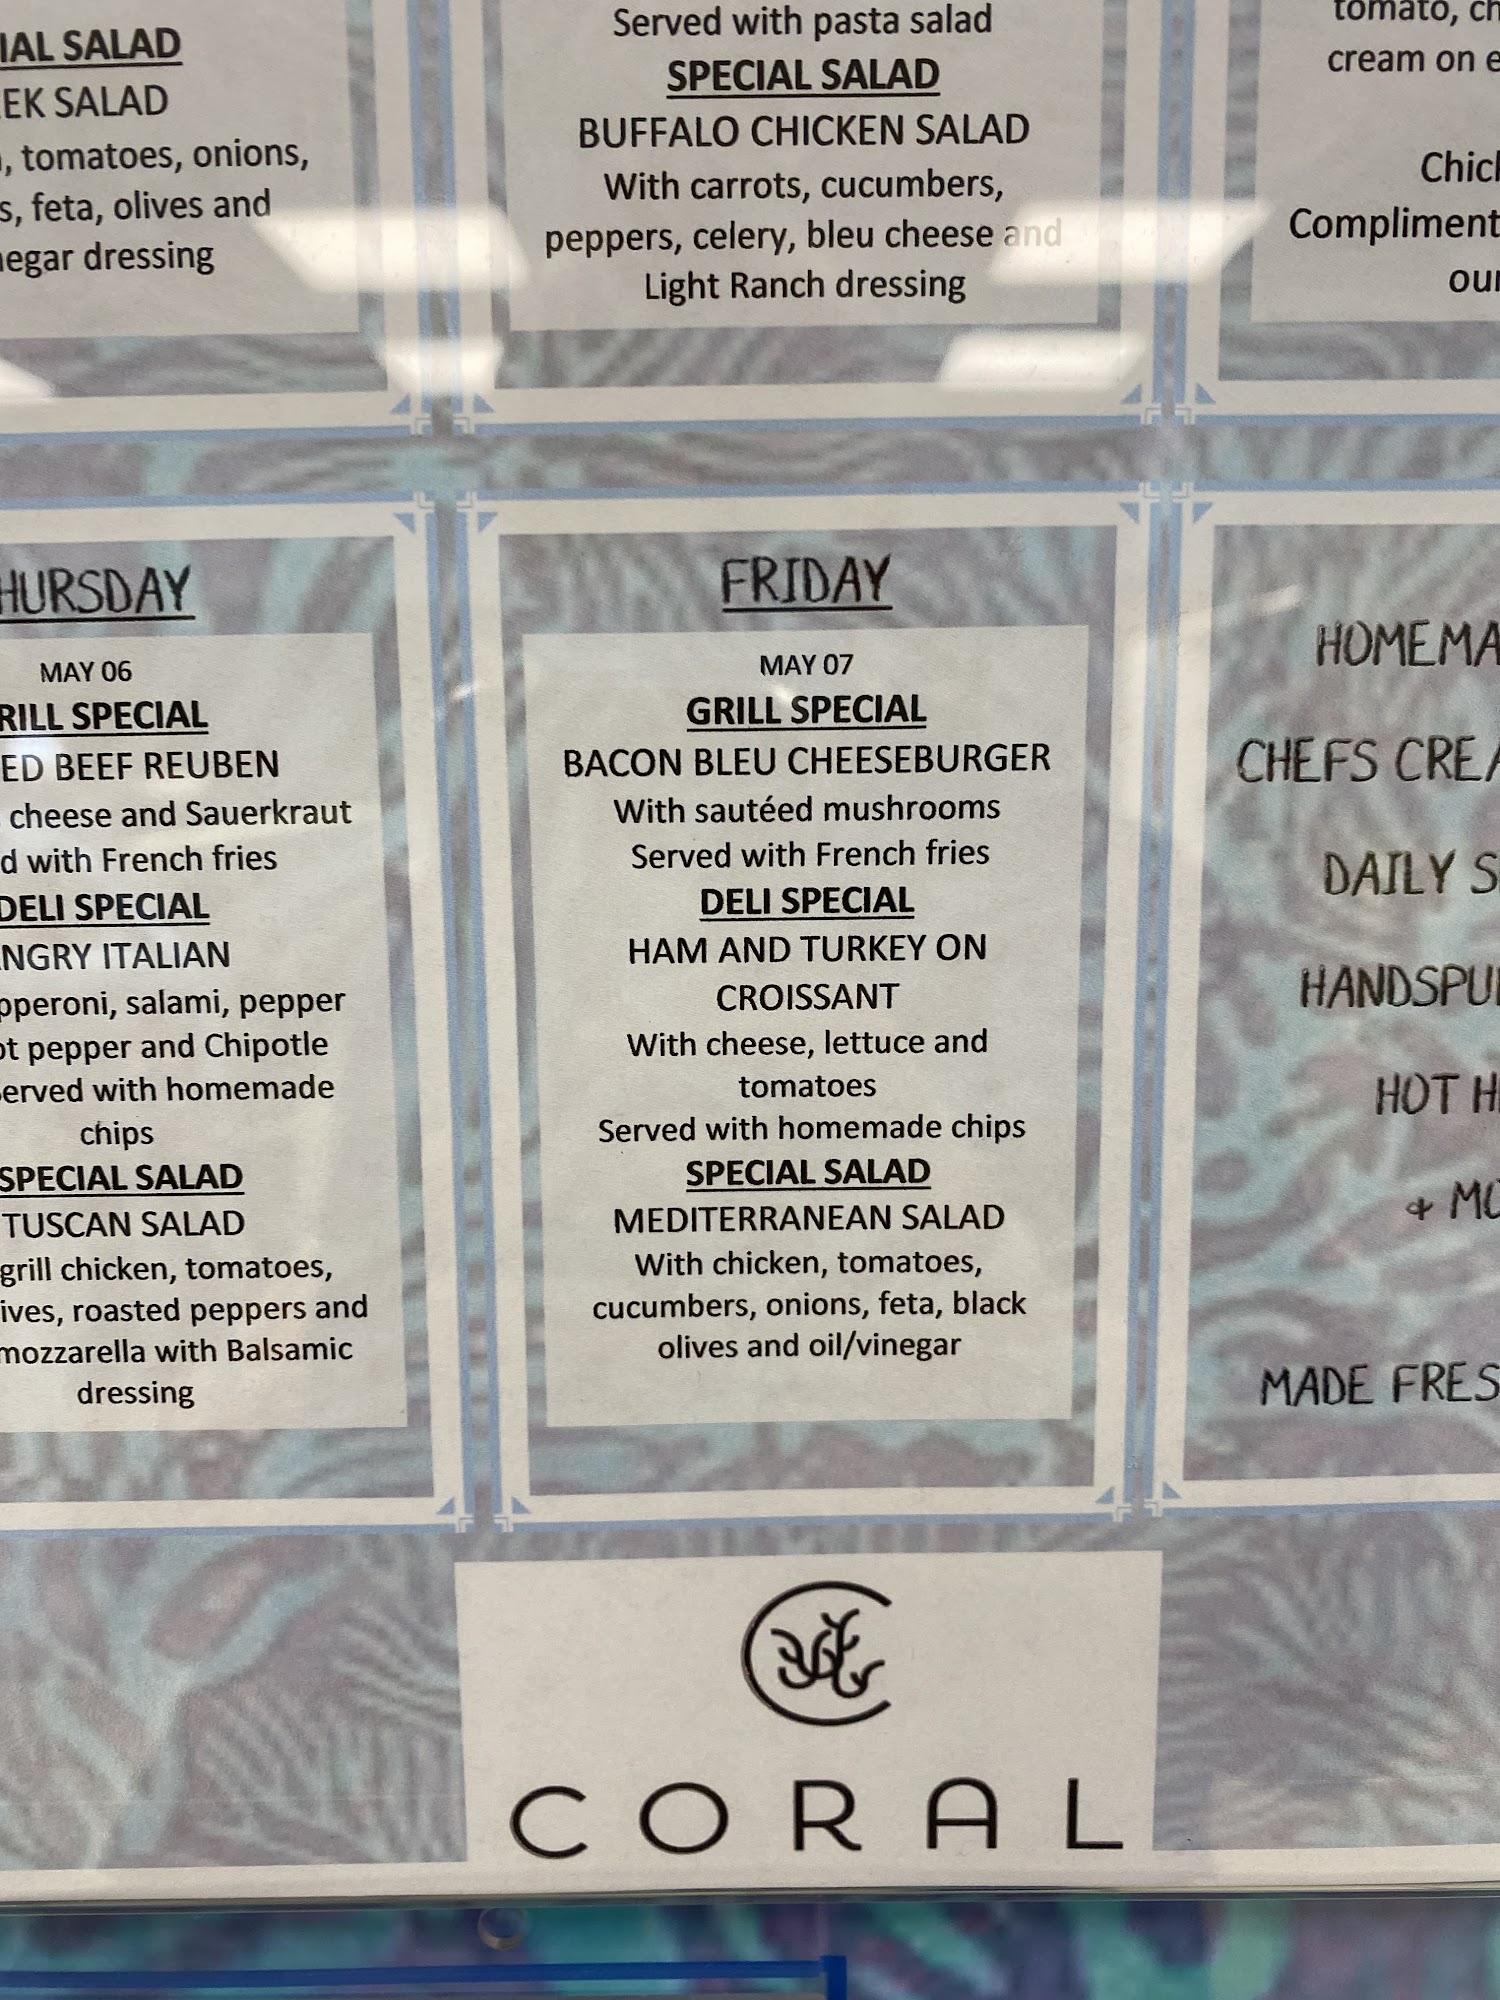 IAL SALAD
EK SALAD
, tomatoes, onions,
s, feta, olives and
negar dressing
Served with pasta salad
SPECIAL SALAD
BUFFALO CHICKEN SALAD
With carrots, cucumbers,
peppers, celery, bleu cheese and
Light Ranch dressing
tomato, ch
cream on e
Chick
Compliment
our
HURSDAY
MAY 06
RILL SPECIAL
ED BEEF REUBEN
cheese and Sauerkraut
d with French fries
DELI SPECIAL
NGRY ITALIAN
pperoni, salami, pepper
ot pepper and Chipotle
Served with homemade
chips
SPECIAL SALAD
TUSCAN SALAD
grill chicken, tomatoes,
ives, roasted peppers and
mozzarella with Balsamic
dressing
FRIDAY
MAY 07
GRILL SPECIAL
BACON BLEU CHEESEBURGER
With sautéed mushrooms
Served with French fries
DELI SPECIAL
HAM AND TURKEY ON
CROISSANT
With cheese, lettuce and
tomatoes
Served with homemade chips
SPECIAL SALAD
MEDITERRANEAN SALAD
With chicken, tomatoes,
cucumbers, onions, feta, black
olives and oil/vinegar
HOMEMA
CHEFS CREA
DAILY S
HANDSPU
HOT H
+ MO
MADE FRES
CORAL